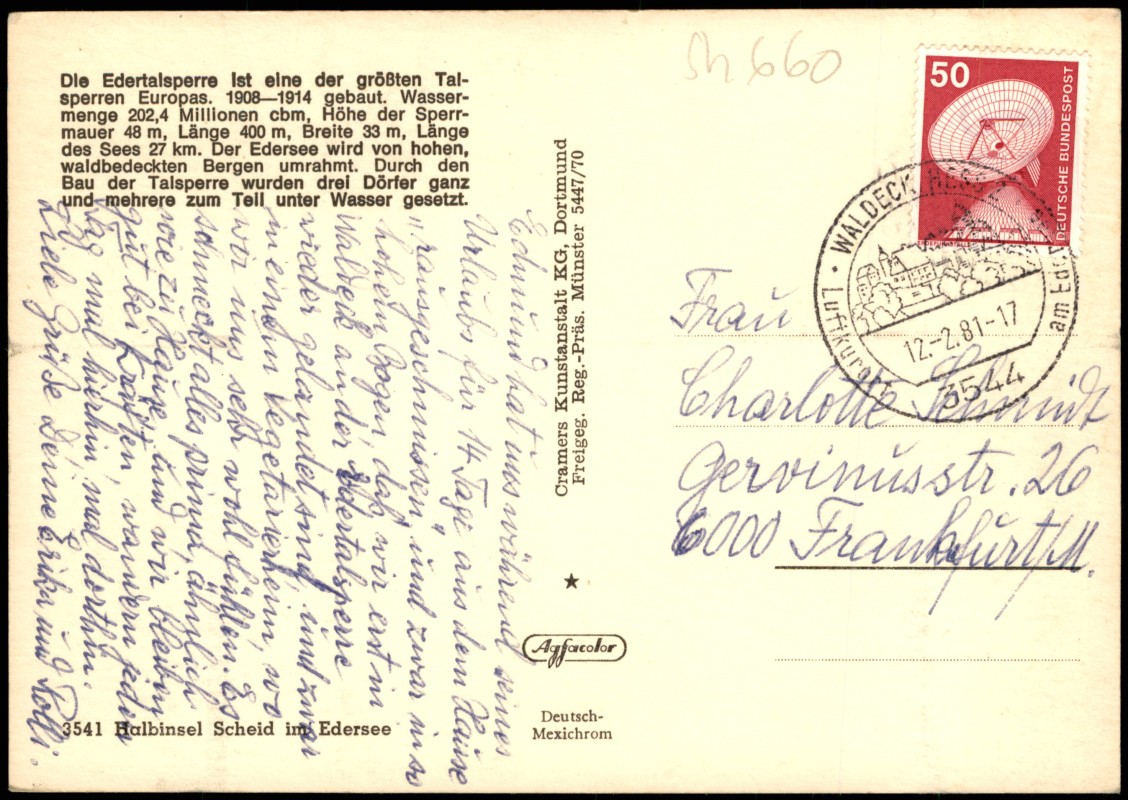 Die Edertalsperre ist eine der größten Tal-
sperren Europas. 1908—1914 gebaut. Wasser-
menge 202,4 Millionen cbm, Höhe der Sperr-
mauer 48 m, Länge 400 m, Breite 33 m, Länge
des Sees 27 km. Der Edersee wird von hohen,
waldbedeckten Bergen umrahmt. Durch den
Bau der Talsperre wurden drei Dörfer ganz
und mehrere zum Teil unter Wasser gesetzt.
Edmund hat uns während seines
Urlaubs für 14 Tage aus dem Hause
"rausgeschmissen", und zwar in so
hohem Bogen, daß wir erst in
Waldeck an der Edertalsperre
wieder gelandet sind, und zwar
in einem Vegetarierheim, wo
wir uns sehr wohl fühlen. Es
schmeckt alles prima, ähnlich
wie zu Hause, und wir bleiben
gut bei Kräften, wandern jeden
Tag mal hierhin, mal dorthin.
Viele Grüße Deine Erika und Rolli.
3541 Halbinsel Scheid im Edersee
Cramers Kunstanstalt KG, Dortmund
Freigeg. Reg.-Präs. Münster 5447/70
Agfacolor
Deutsch-
Mexichrom
660
50
DEUTSCHE BUNDESPOST
WALDECK, HESS
am Eder
Luftkurort
12.-2.81-17
3544
Frau
Charlotte Schmidt
Gervinusstr. 26
6000 Frankfurt/M.